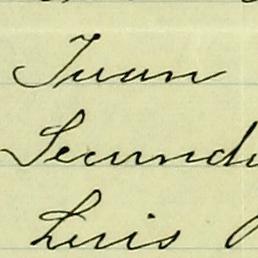 Juan
Secund
Luis